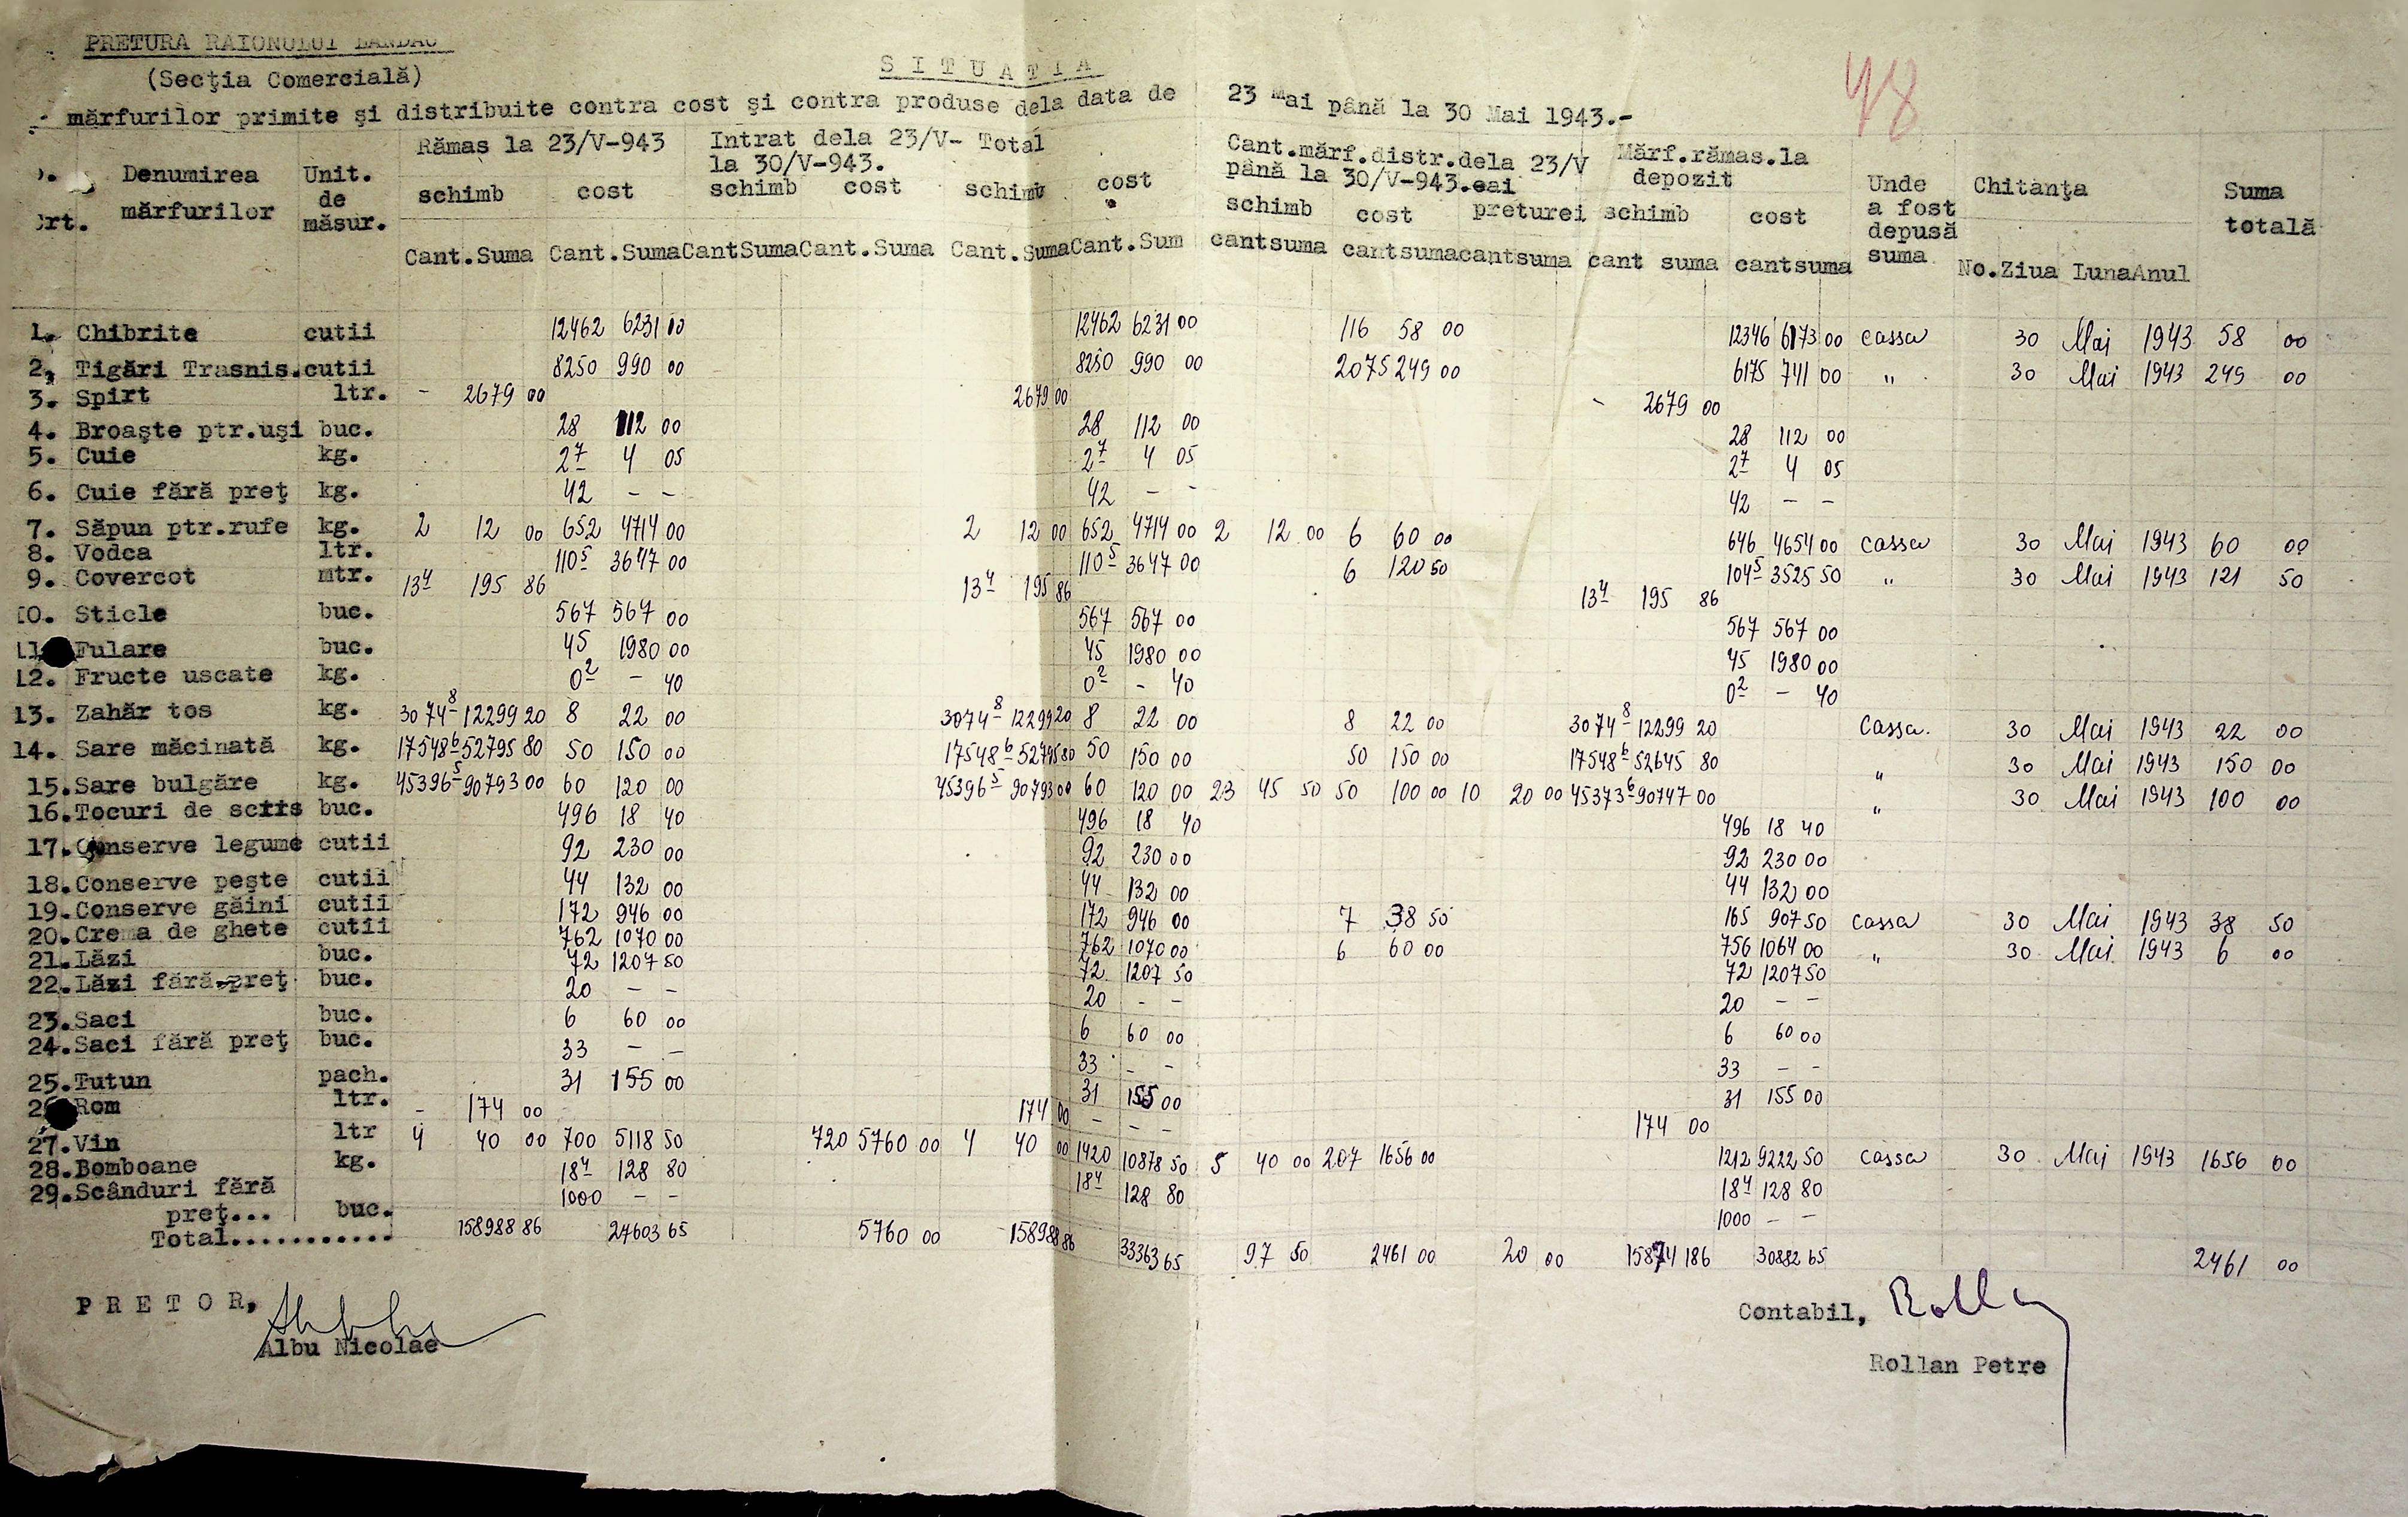 PRETURA RAIONULUI LANDAU
(Secţia Comercială)
S I T U A Ţ I A
48
mărfurilor primite şi distribuite contra cost şi contra produse dela data de 23 Mai până la 30 Mai 1943.-
Rămas la 23/V-943 Intrat dela 23/V- Total Cant.mărf.distr.dela 23/V Mărf.rămas.la
la 30/V-943. până la 30/V-943.eai depozit
Crt. Denumirea mărfurilor Unit. de măsur. schimb cost schimb cost schimb cost schimb cost preturei schimb cost Unde a fost depusă suma Chitanţa Suma totală
Cant.Suma Cant.Suma CantSuma Cant.Suma Cant.Suma Cant.Sum cantsuma cantsuma cantsuma cant suma cantsuma No.Ziua Luna Anul
1. Chibrite cutii 12462 6231 00 12462 6231 00 116 58 00 12346 6173 00 cassa 30 Mai 1943 58 00
2. Tigări Trasnis.cutii 8250 990 00 8250 990 00 2075 249 00 6175 741 00 " 30 Mai 1943 249 00
3. Spirt ltr. - 2679 00 2679 00 - 2679 00
4. Broaşte ptr.uşi buc. 28 112 00 28 112 00 28 112 00
5. Cuie kg. 2 7 4 05 2 7 4 05 2 7 4 05
6. Cuie fără preţ kg. 42 - - 42 - - 42 - -
7. Săpun ptr.rufe kg. 2 12 00 652 4714 00 2 12 00 652 4714 00 2 12 00 6 60 00 646 4654 00 cassa 30 Mai 1943 60 00
8. Vodca ltr. 110 5 3647 00 110 5 3647 00 6 120 50 104 5 3525 50 " 30 Mai 1943 121 50
9. Covercot mtr. 13 4 195 86 13 4 195 86 13 4 195 86
10. Sticle buc. 567 567 00 567 567 00 567 567 00
11 Fulare buc. 45 1980 00 45 1980 00 45 1980 00
12. Fructe uscate kg. 0 2 - 40 0 2 - 40 0 2 - 40
13. Zahăr tos kg. 3074 8 12299 20 8 22 00 3074 8 12299 20 8 22 00 8 22 00 3074 8 12299 20 Cassa. 30 Mai 1943 22 00
14. Sare măcinată kg. 17548 6 52795 80 50 150 00 17548 6 52795 80 50 150 00 50 150 00 17548 6 52645 80 " 30 Mai 1943 150 00
15.Sare bulgăre kg. 45396 5 90793 00 60 120 00 45396 5 90793 00 60 120 00 23 45 50 50 100 00 10 20 00 45373 6 90747 00 " 30 Mai 1943 100 00
16.Tocuri de scris buc. 496 18 40 496 18 40 496 18 40
17.Conserve legume cutii 92 230 00 92 230 00 92 230 00
18.Conserve peşte cutii 44 132 00 44 132 00 44 132 00
19.Conserve găini cutii 172 946 00 172 946 00 7 38 50 165 907 50 cassa 30 Mai 1943 38 50
20.Crema de ghete cutii 762 1070 00 762 1070 00 6 60 00 756 1064 00 " 30 Mai 1943 6 00
21.Lăzi buc. 72 1207 50 72 1207 50 72 1207 50
22.Lăzi fără preţ buc. 20 - - 20 - - 20 - -
23.Saci buc. 6 60 00 6 60 00 6 60 00
24.Saci fără preţ buc. 33 - - 33 - - 33 - -
25.Tutun pach. 31 155 00 31 155 00 31 155 00
26 Rom ltr. - 174 00 174 00 - - - 174 00
27.Vin ltr 4 40 00 700 5118 50 720 5760 00 4 40 00 1420 10878 50 5 40 00 207 1656 00 1212 9222 50 cassa 30 Mai 1943 1656 00
28.Bomboane kg. 18 4 128 80 18 4 128 80 18 4 128 80
29.Scânduri fără
preţ... buc. 1000 - - 1000 - -
Total............ 158988 86 27603 65 5760 00 158988 86 33363 65 97 50 2461 00 20 00 158741 86 30882 65 2461 00
P R E T O R,
Albu Nicolae
Contabil, Rollan
Rollan Petre